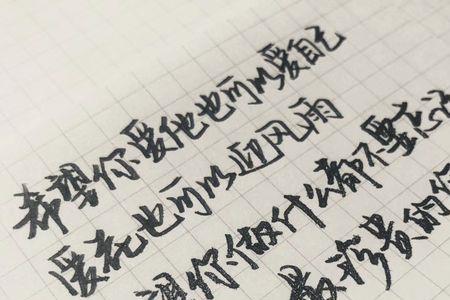 希望你爱他也可以爱自己
爱花也可以迎风雨
你做什么都不要忘
最珍贵的你